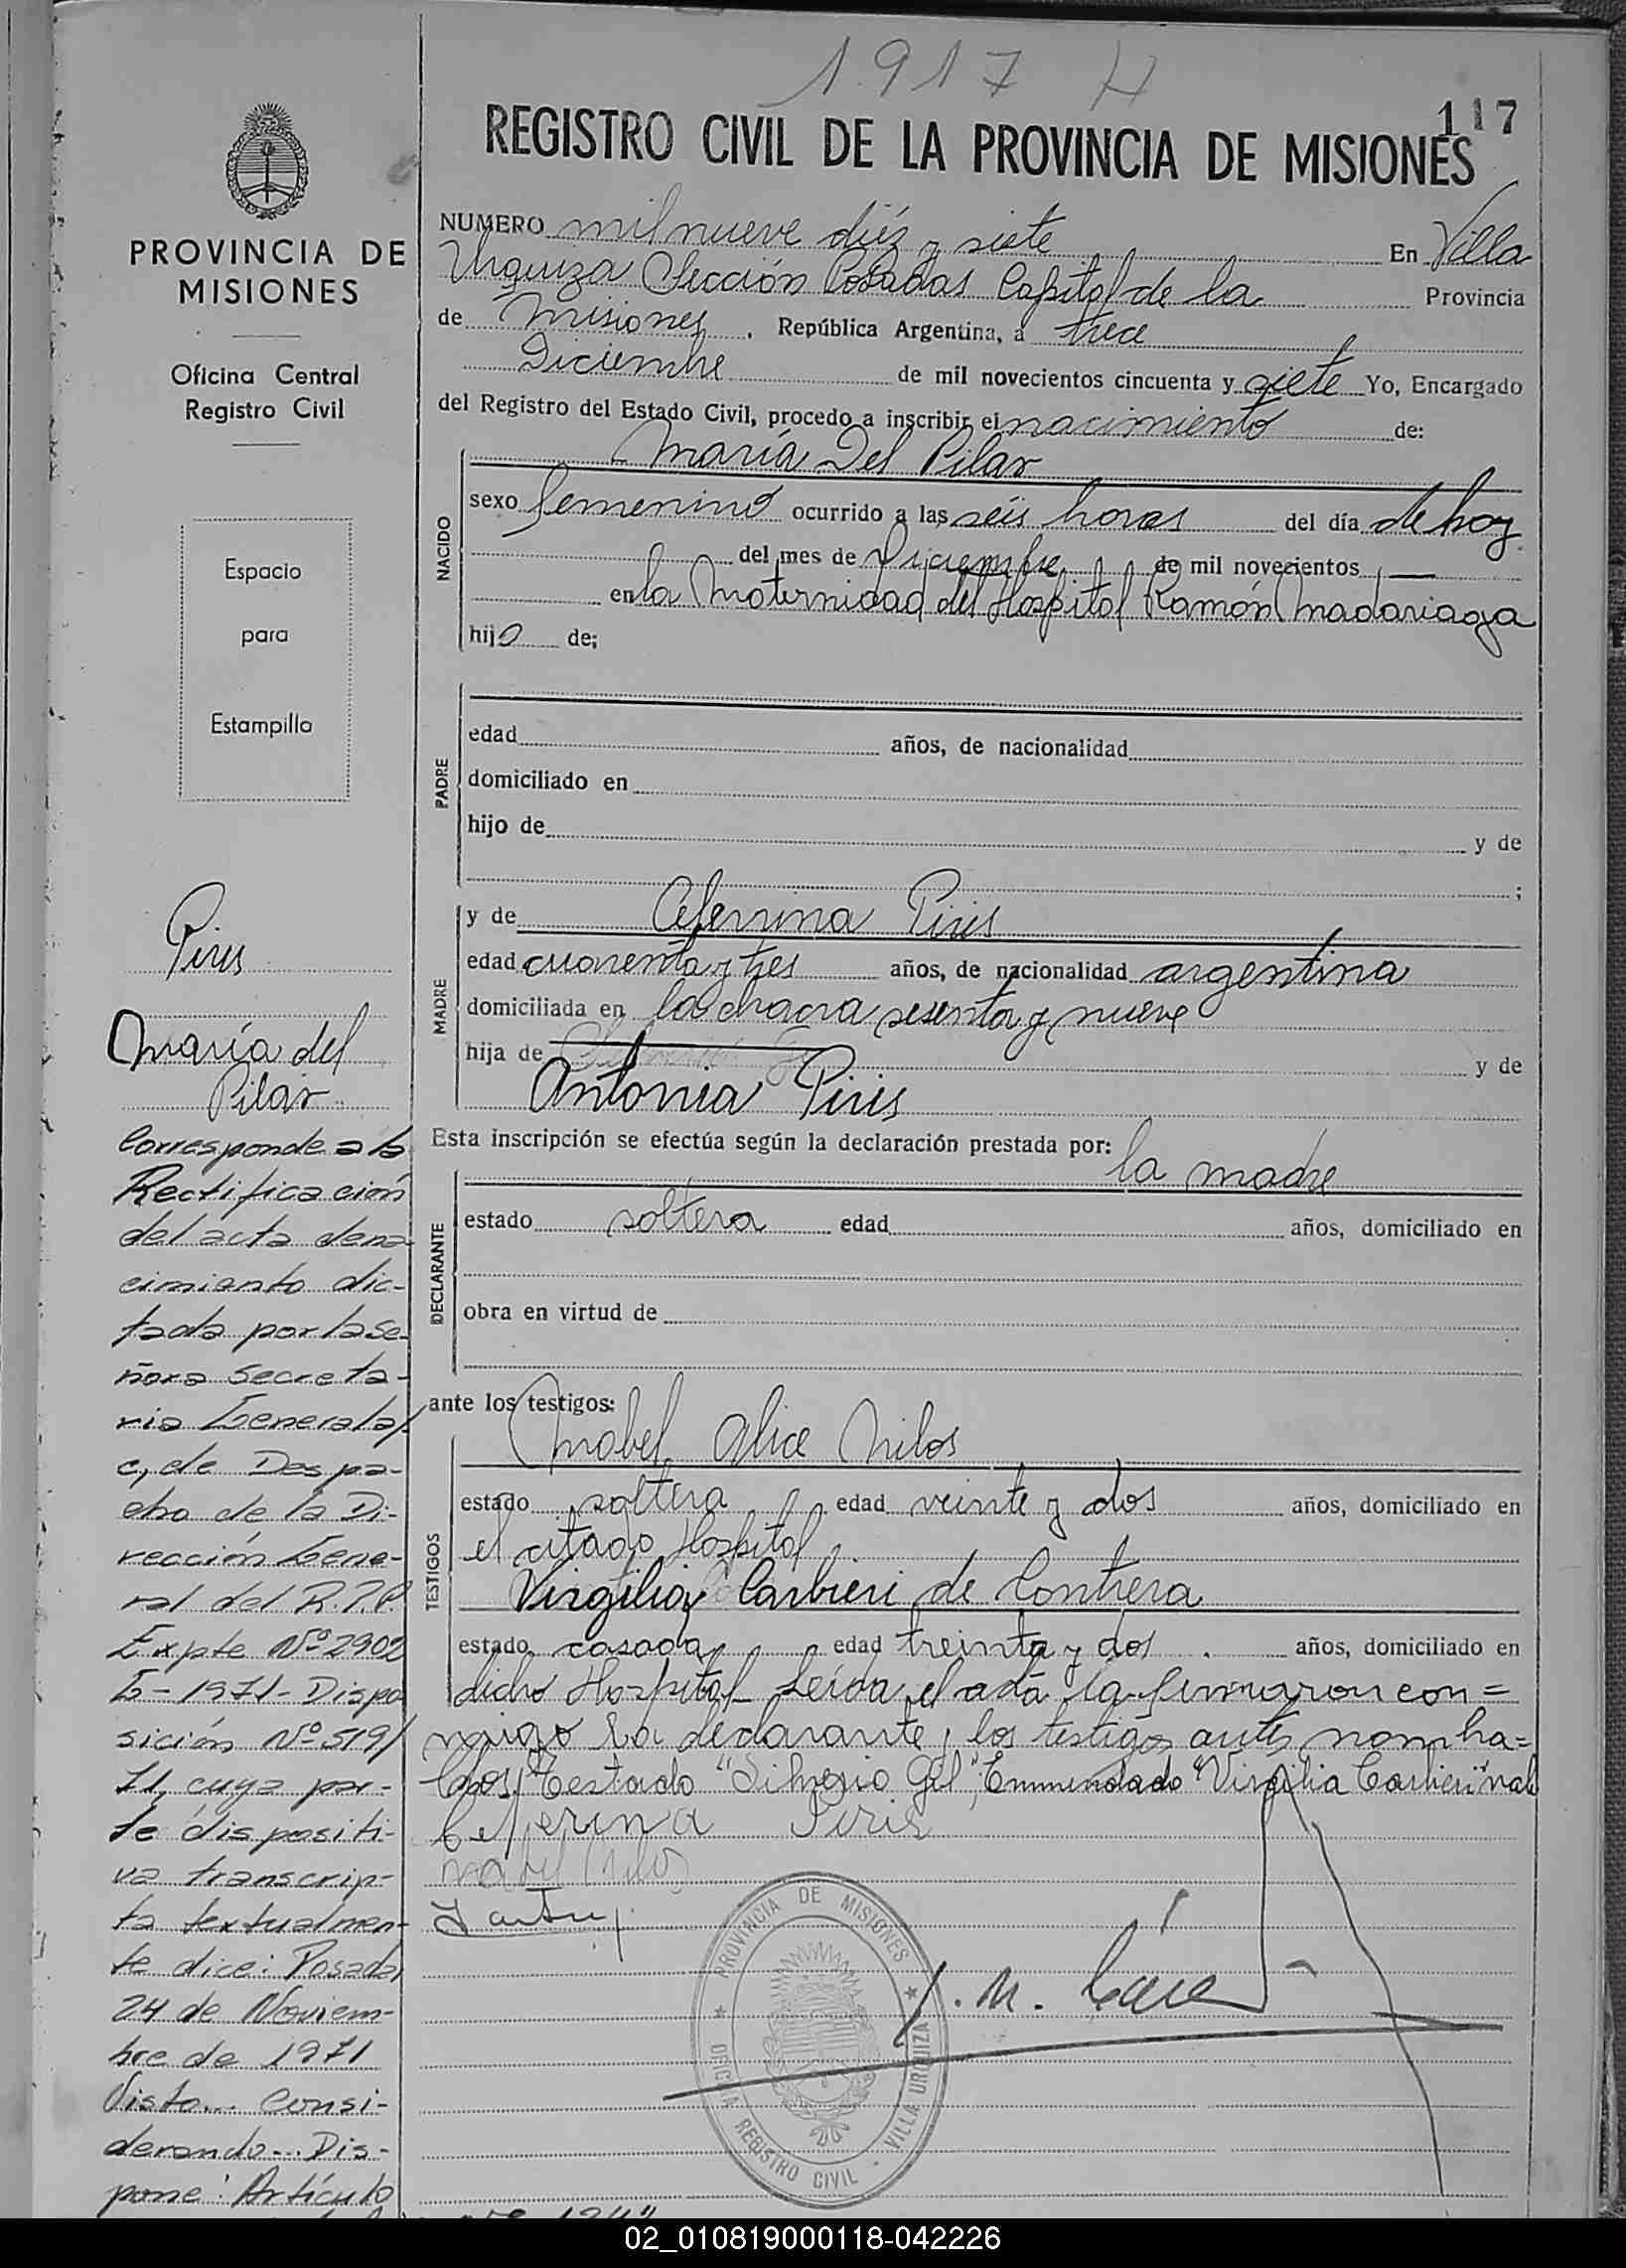 1917 H
117
REGISTRO CIVIL DE LA PROVINCIA DE MISIONES
PROVINCIA DE
MISIONES
Oficina Central
Registro Civil
Espacio
para
Estampilla
Piris
María del
Pilar
Corresponde a la
Rectificación
del acta de na
cimiento dic-
tada por la se-
ñora Secreta-
ria General a/
c, de Despa-
cho de la Di-
rección Gene-
ral del R.P.P.
Expte Nº 2902
G-1971- Dispo
sición Nº 519/
71, cuya par-
te dispositi-
va transcrip-
ta textualmen-
te dice: Posadas
24 de Noviem-
bre de 1971
Visto... Consi-
derando... Dis-
pone: Artículo
NUMERO mil nueve diéz y siete En Villa
Urquiza Sección Posadas Capital de la Provincia
de Misiones, República Argentina, a trece
Diciembre de mil novecientos cincuenta y siete Yo, Encargado
del Registro del Estado Civil, procedo a inscribir el nacimiento de:
NACIDO
María Del Pilar
sexo femenino ocurrido a las séis horas del día de hoy
del mes de Diciembre de mil novecientos —
en la Maternidad del Hospital Ramón Madariaga
hija de;
PADRE
edad años, de nacionalidad
domiciliado en
hijo de y de
;
MADRE
y de Ceferina Piris
edad cuarenta y tres años, de nacionalidad argentina
domiciliada en la chacra sesenta y nueve
hija de y de
Antonia Piris
Esta inscripción se efectúa según la declaración prestada por:
DECLARANTE
la madre
estado soltera edad años, domiciliado en
obra en virtud de
ante los testigos:
TESTIGOS
Mabel Alice Milos
estado soltera edad veinte y dos años, domiciliado en
el citado Hospital
Virgilia Carbieri de Contrera
estado casada edad treinta y dos. años, domiciliado en
dicho Hospital Leída el acta la firmaron con=
migo la declarante, los testigos antes nombra=
dos, Testado "Silverio Gil", Enmendado "Virgilia Carbieri" vale
Ceferina Piris
Mabel Milos
J. M.
PROVINCIA DE MISIONES
OFICINA REGISTRO CIVIL - VILLA URQUIZA
02_010819000118-042226